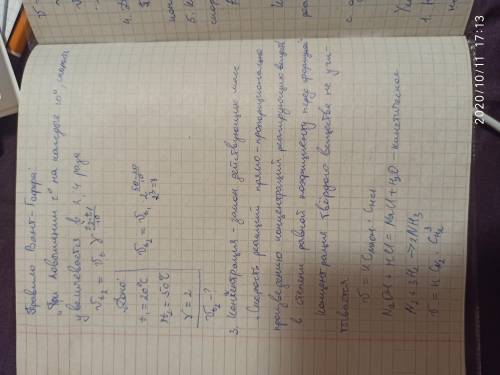 Правило Вант-Гоффа:
"При повышении t° на каждые 10°, скорость
увеличивается в 2-4 раза
v t2 = v t1 γ t2-t1/10
Дано:
t1 = 20°C
t2 = 50°C
γ = 2
v t2 - ?
v t2 = v t1 2 50-20/10
2³=8
3. Концентрация - закон действующих масс
"Скорость реакции прямо-пропорциональна
произведению концентраций реагирующих веществ
в степени равной коэффициенту перед формулой
Концентрация твёрдого вещества не учи-
тывается
v = K CNaOH · CHCl
NaOH + HCl = NaCl + H2O - кинетическое
N2 + 3H2 → 2NH3
v = K CN2 · C³H2
2020/10/11 17:13